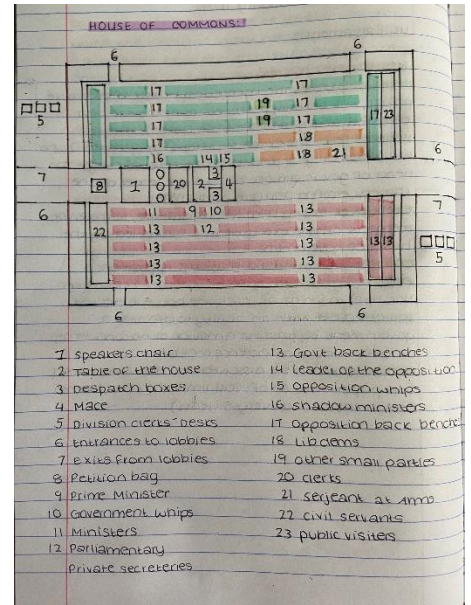 HOUSE OF COMMONS:
6 6
17 17
17 19 17
17 19 17
17 18
16 14 15 18 21
17 23
5
6
7 8 1 0 0 0 20 2 3 3 4
7
6
11 9 10 13
22 13 12 13
13 13
13 13
13 13
13 13
5
6 6
1 speakers chair
2 Table of the house
3 Despatch boxes
4 Mace
5 Division clerts' Desks
6 Entrances to lobbies
7 Exits from lobbies
8 Petition bag
9 Prime Minister
10 Government whips
11 Ministers
12 Parliamentary
Private secreteries
13 Govt back benches
14 Leader of the opposition
15 opposition whips
16 shadow ministers
17 opposition back benche
18 Lib dems
19 other small parties
20 clerts
21 serjeant at Arms
22 civil servants
23 public visiters